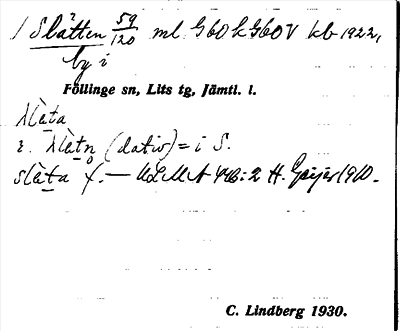 1 Slåtten 59/120 ml. G60 k G60V kb 1922,
by i
Föllinge sn, Lits tg, Jämtl. l.
slåta
i. (dativ) = i S.
slåta f. — ULMA 446:2 H. Geijer 1910.
C. Lindberg 1930.